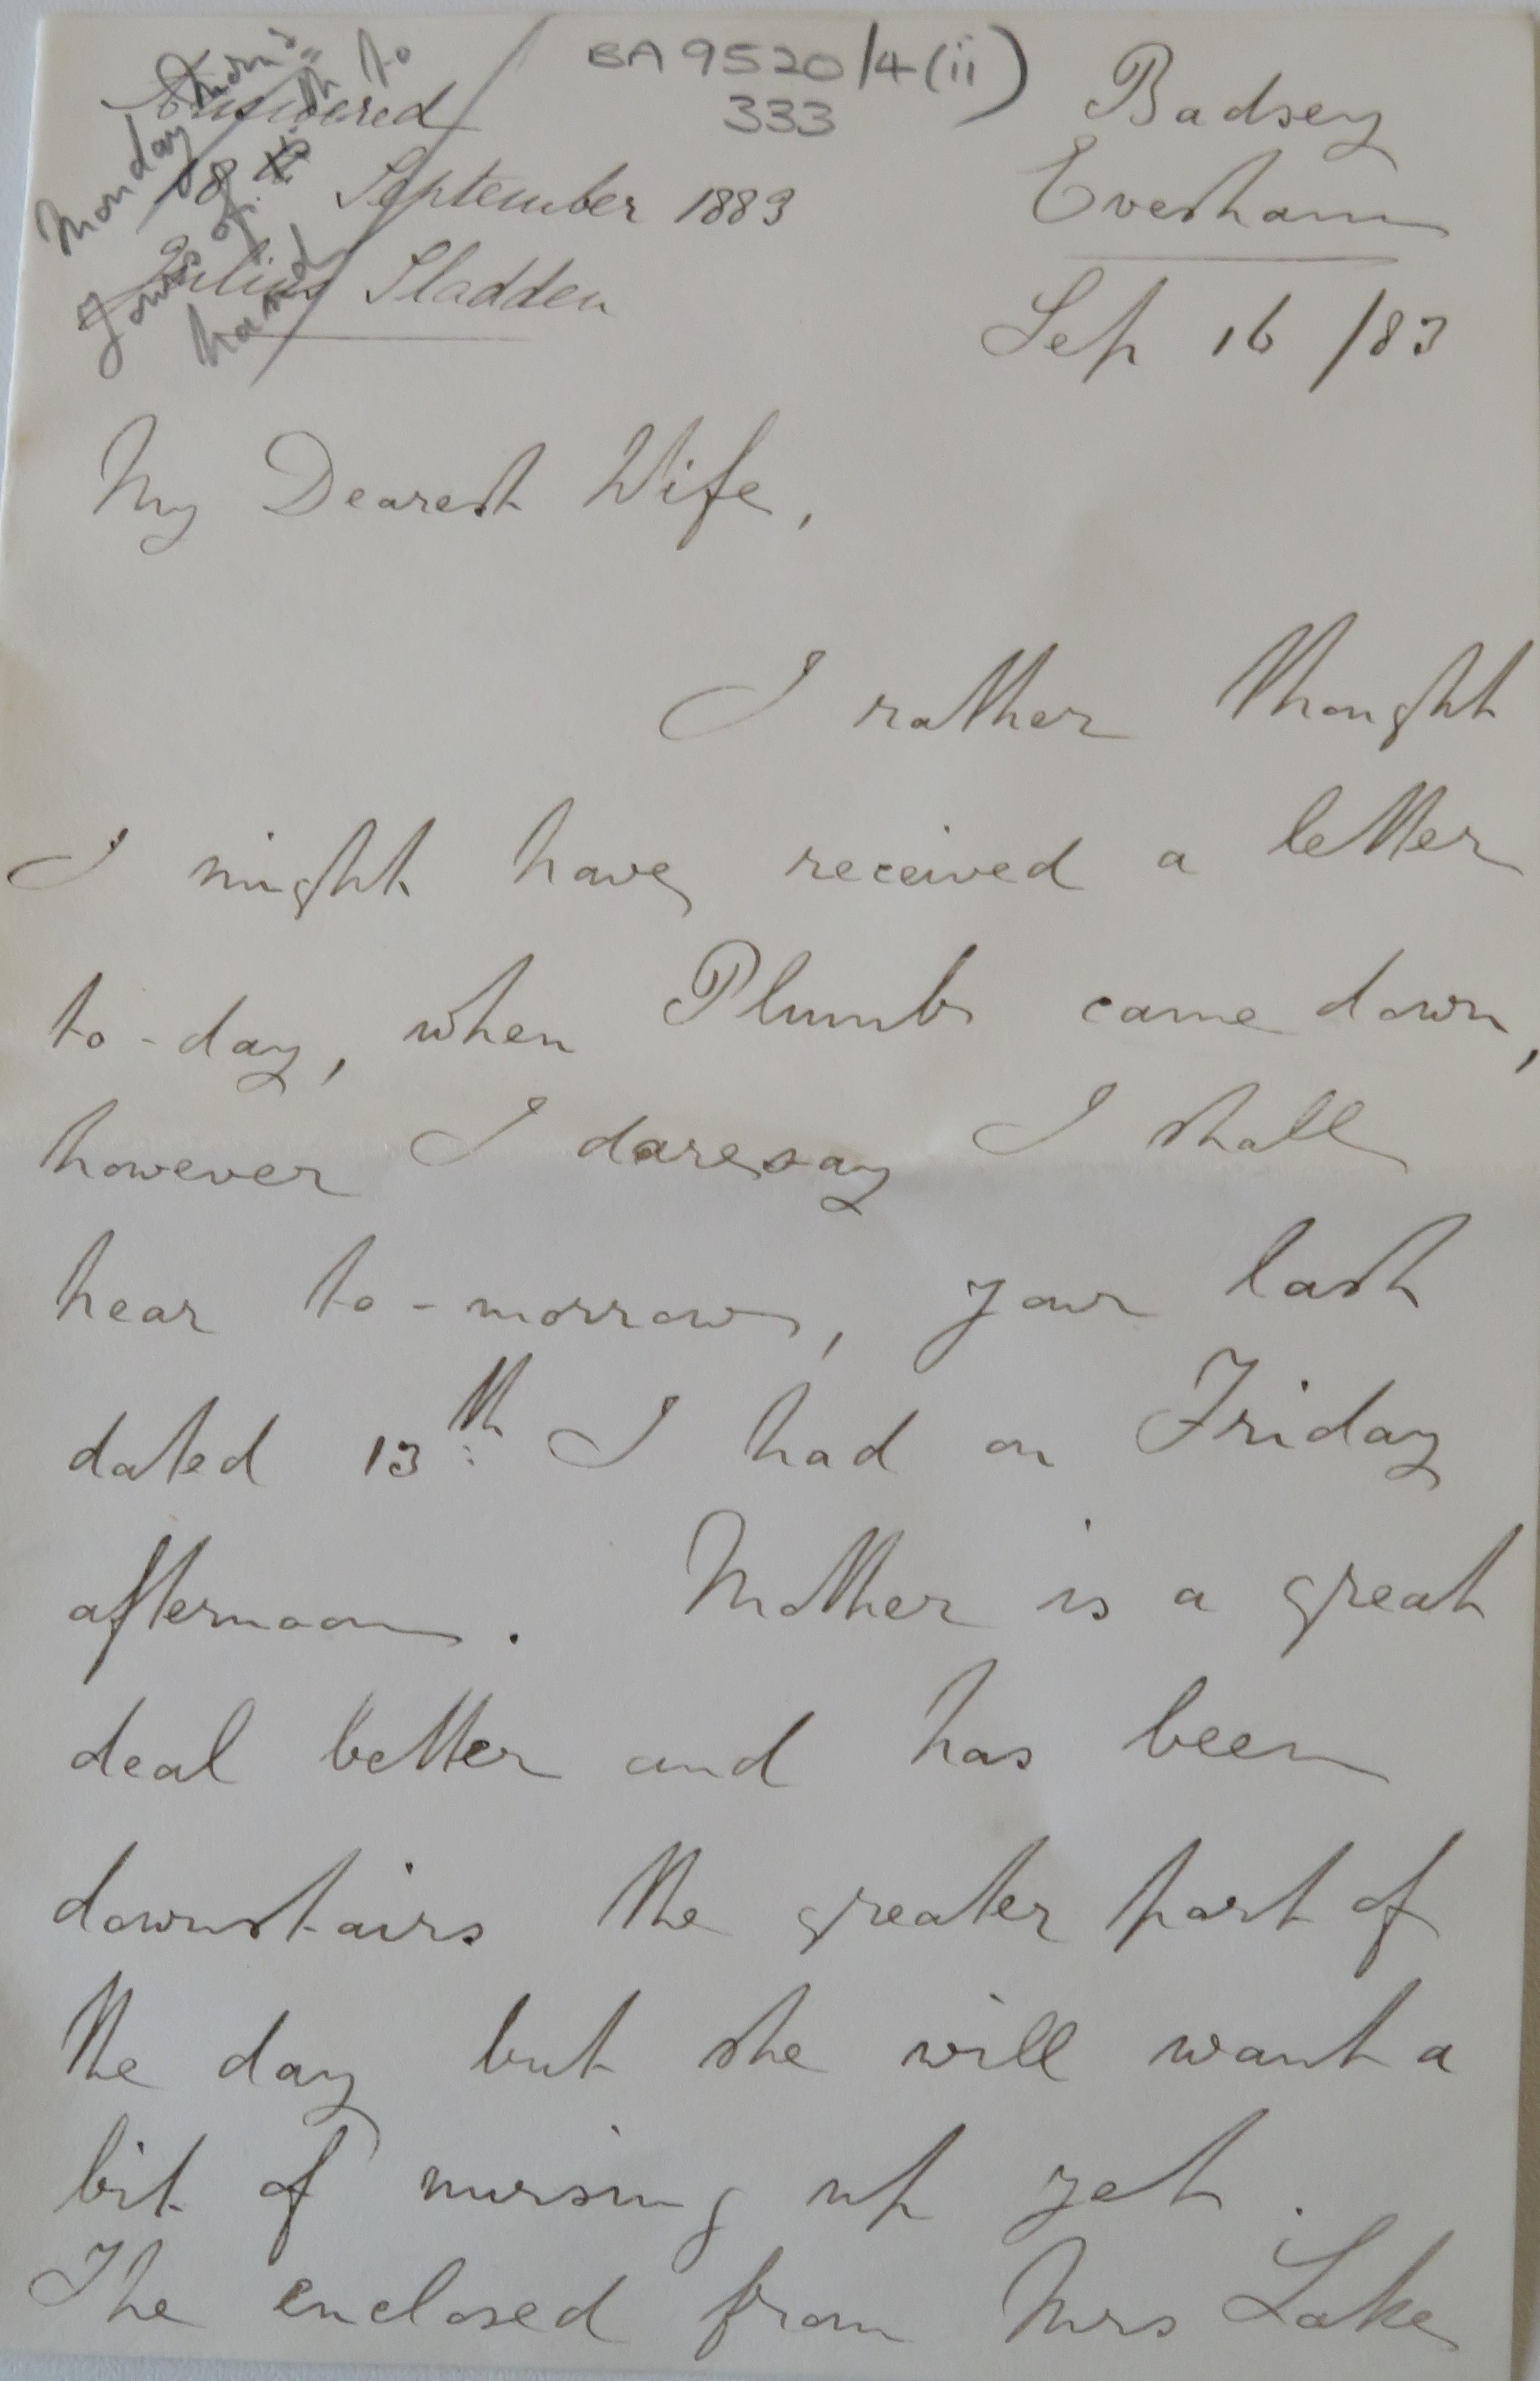 BA 9520/4(ii)
333
Answered
18th September 1883
Julius Sladden
Monday
yours of
to
hand
Badsey
Evesham
Sep 16 /83
My Dearest Wife,
I rather thought
I might have received a letter
to-day, when Plumb came down,
however I daresay I shall
hear to-morrow, your last
dated 13th I had on Friday
afternoon. Mother is a great
deal better and has been
downstairs the greater part of
the day but she will want a
bit of nursing up yet.
The enclosed from Mrs Lake